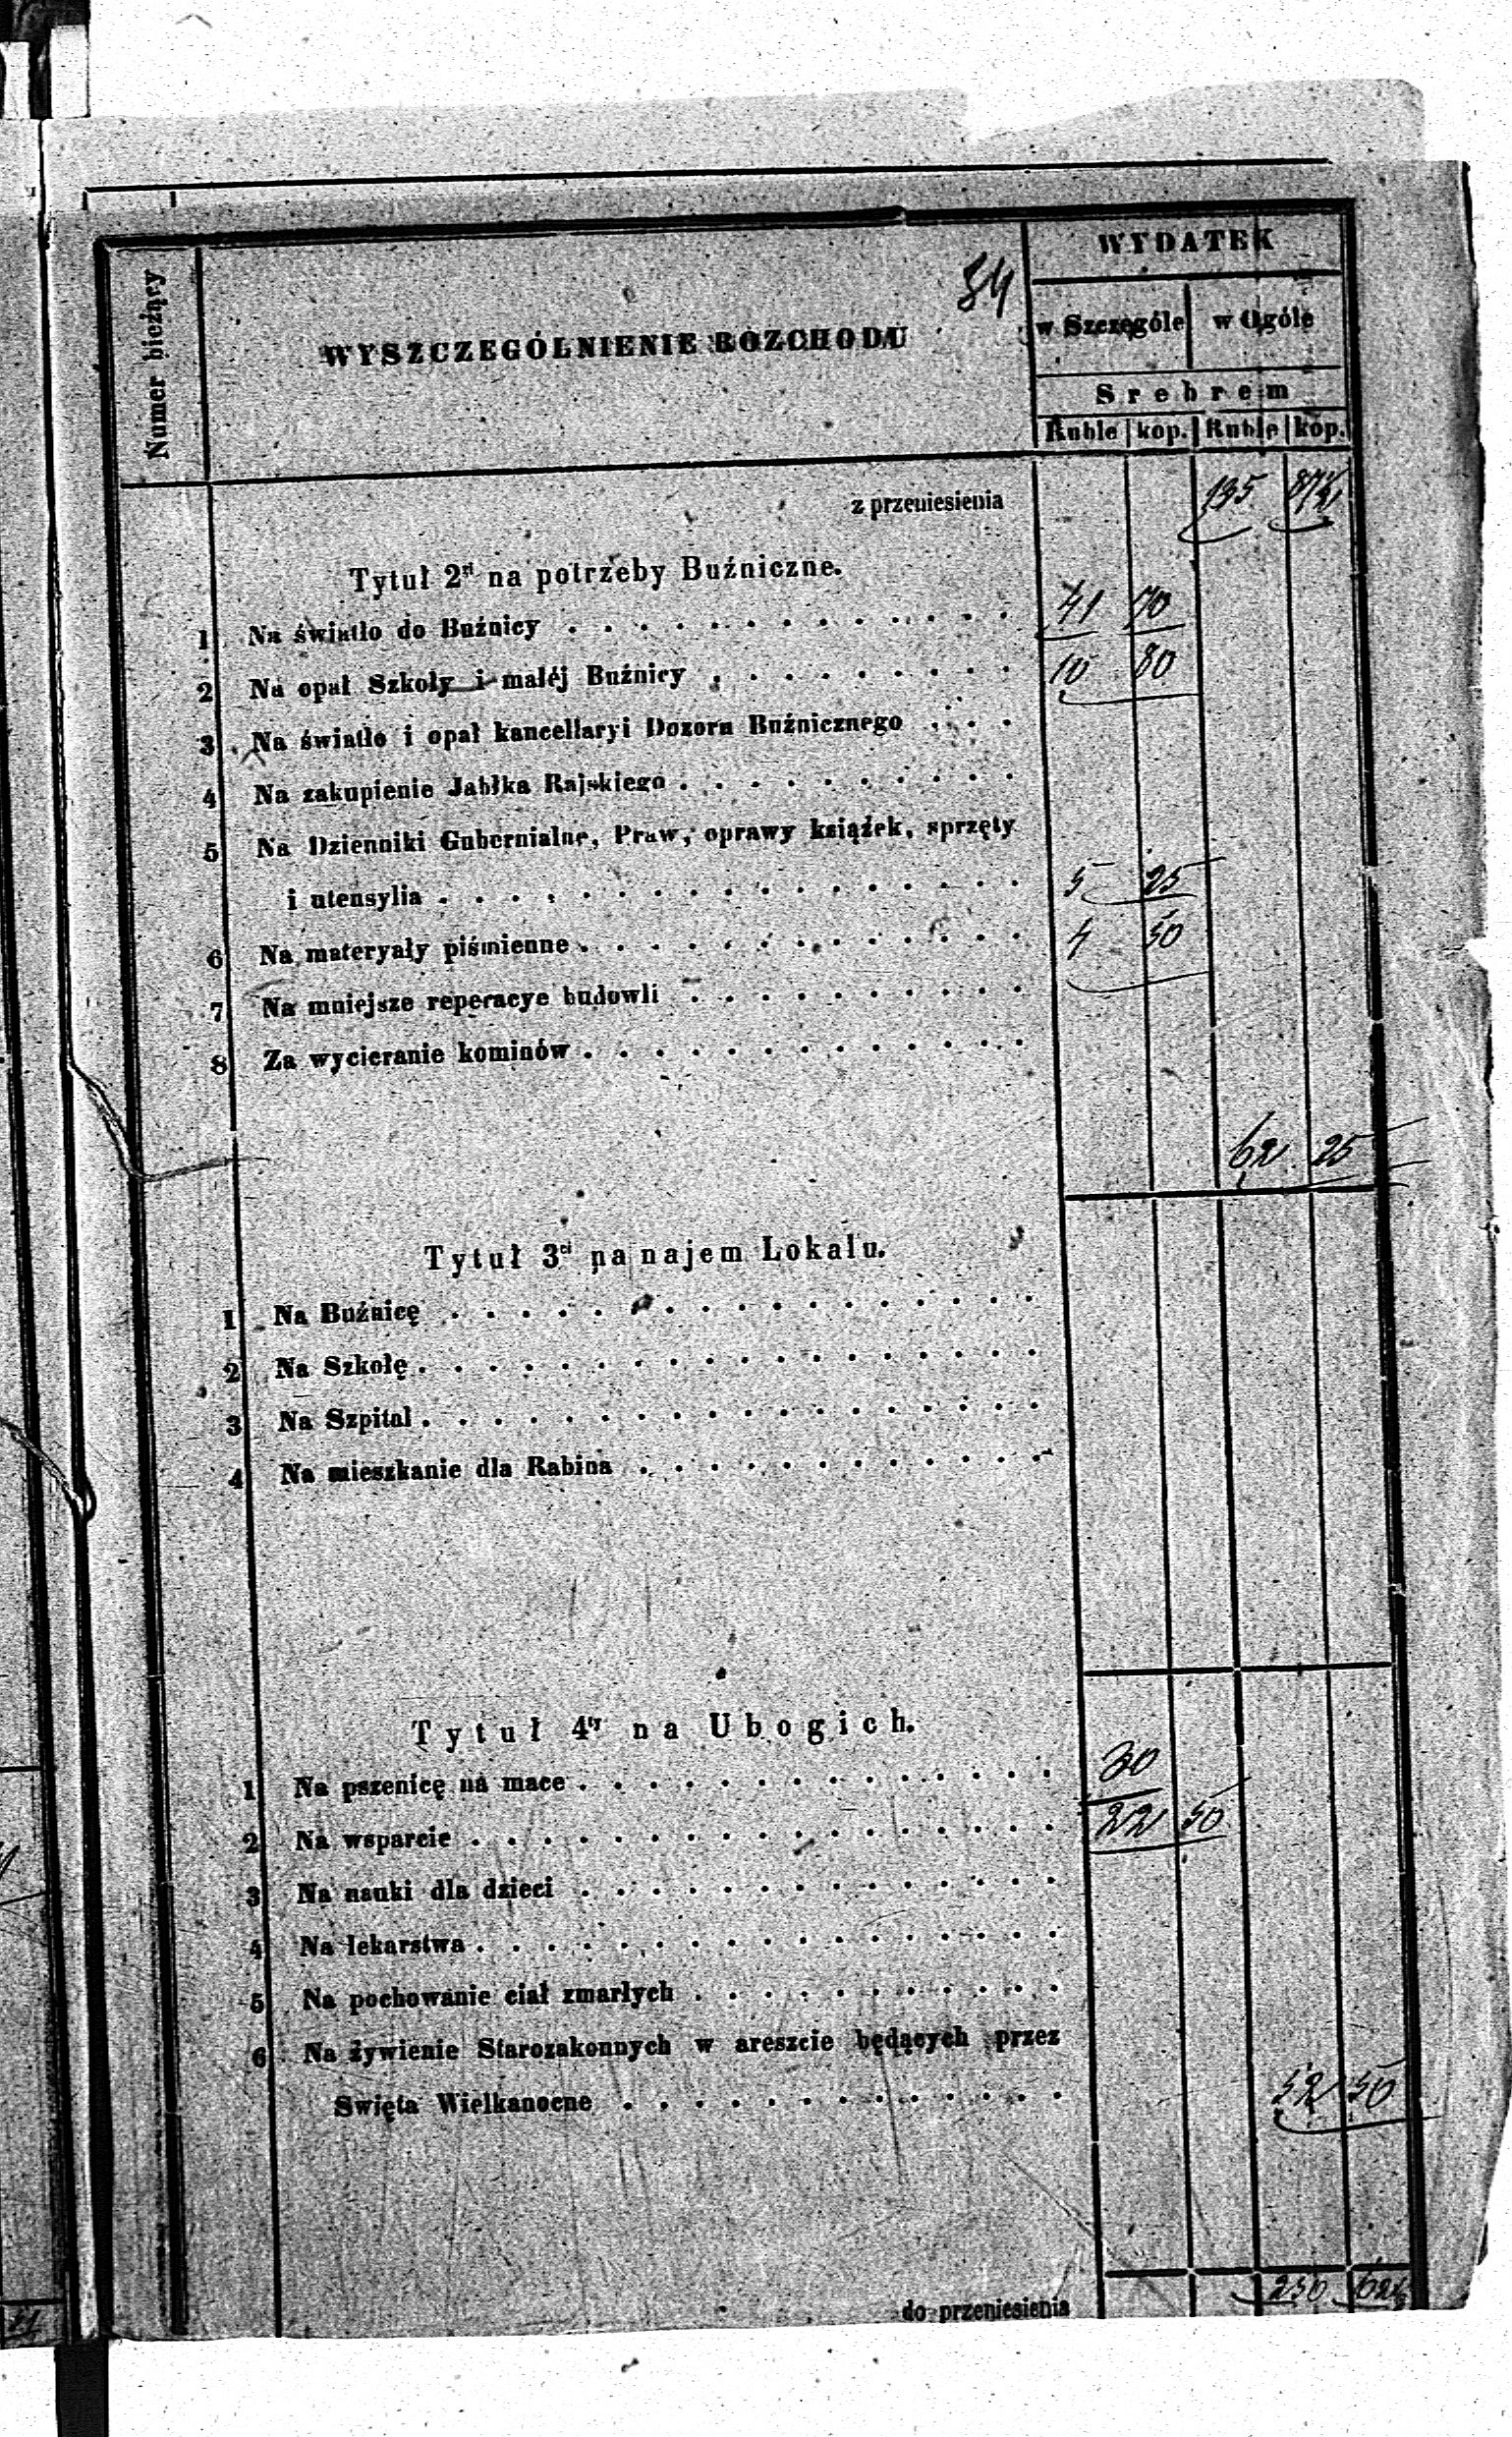 84
WYDATEK
Numer bieżący
WYSZCZEGÓLNIENIE ROZCHODU
w Szczególe w Ogóle
Srebrem
Ruble kop. Ruble kop.
z przeniesienia 135 87½
Tytuł 2gi na potrzeby Buźniczne.
1 Na światło do Buźnicy . . . . . . . . . . . . 41 70
2 Na opał Szkoły i małéj Buźnicy . . . . . . . . . 10 80
3 Na światło i opał kancellaryi Dozoru Buźnicznego . . . .
4 Na zakupienie Jabłka Rajskiego . . . . . . . . . .
5 Na Dzienniki Gubernialne, Praw, oprawy książek, sprzęty
i utensylia . . . . . . . . . . . . . . . . 5 25
6 Na materyały piśmienne . . . . . . . . . . . . 4 50
7 Na mniejsze reperacye budowli . . . . . . . . . .
8 Za wycieranie kominów . . . . . . . . . . . . .
62 25
Tytuł 3ci na najem Lokalu.
1 Na Buźnicę . . . . . . . . . . . . . . . . .
2 Na Szkołę . . . . . . . . . . . . . . . . . .
3 Na Szpital . . . . . . . . . . . . . . . . . .
4 Na mieszkanie dla Rabina . . . . . . . . . . . .
Tytuł 4ty na Ubogich.
1 Na pszenicę na mace . . . . . . . . . . . . . . 30
2 Na wsparcie . . . . . . . . . . . . . . . . . 22 50
3 Na nauki dla dzieci . . . . . . . . . . . . . .
4 Na lekarstwa . . . . . . . . . . . . . . . . .
5 Na pochowanie ciał zmarłych . . . . . . . . . . .
6 Na żywienie Starozakonnych w areszcie będących przez
Swięta Wielkanocne . . . . . . . . . . . . . 52 50
do przeniesienia 250 62½